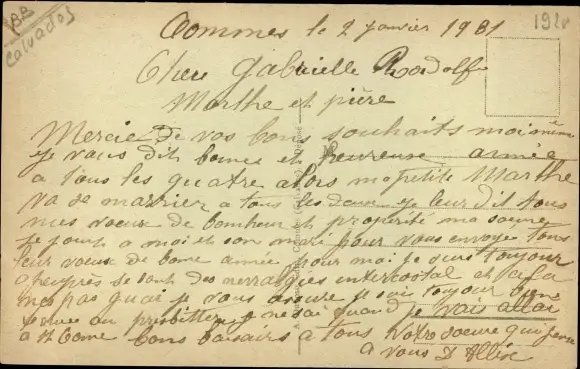 BB
Calvados
Commes le 2 janvier 1931
192
Chere Gabrielle Rodolfe
Marthe et pière
Mercie de vos bons souhaits moi même
je vous dit bonne et heureuse année
a tous les quatre alors ma petite Marthe
va se marrier a tous les deux je leur dit tous
mes voeux de bonheur et propérité ma soeur
se joint a moi et son mari pour vous envoyé tous
leur voeux de bonne année pour moi je suis toujour
a peuprès se sont des nevralgies intercostal et cela
ma pas quai je vous assure je suis toujour
au presbittere je ne sai quand je vais allai
a St Come bons baisers a tous Votre soeur qui
a vous D Allix